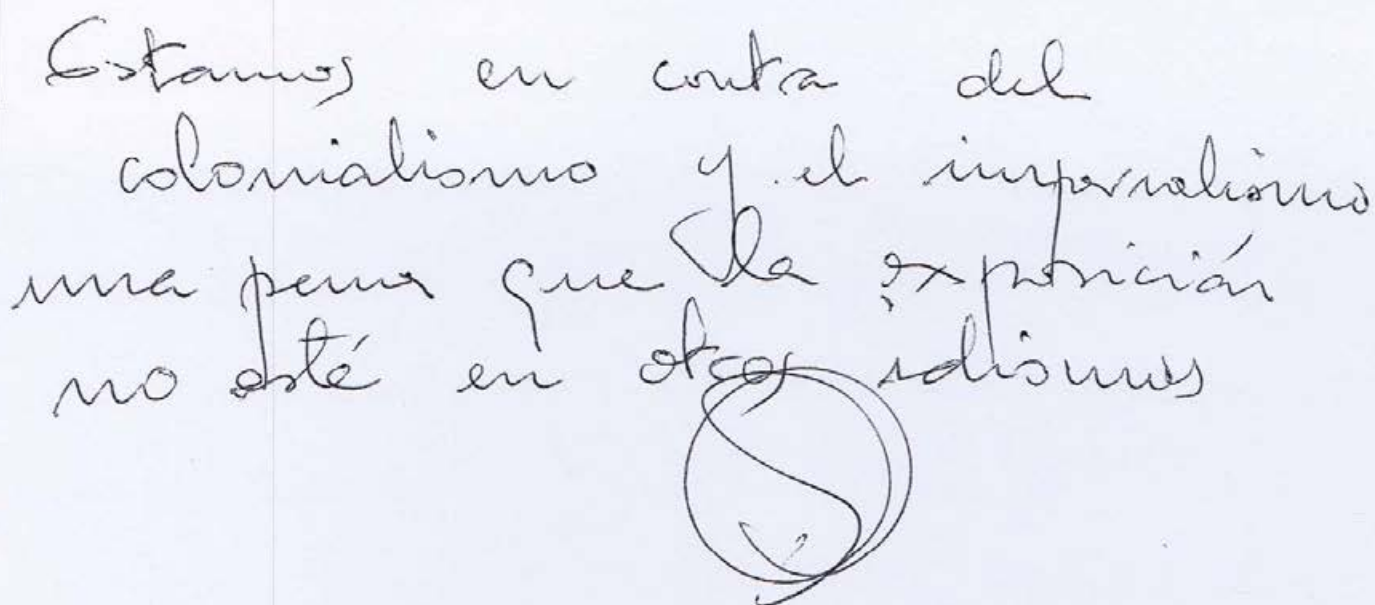 Estamos en contra del
colonialismo y el imperialismo
una pena que la exposición
no esté en otros idiomas